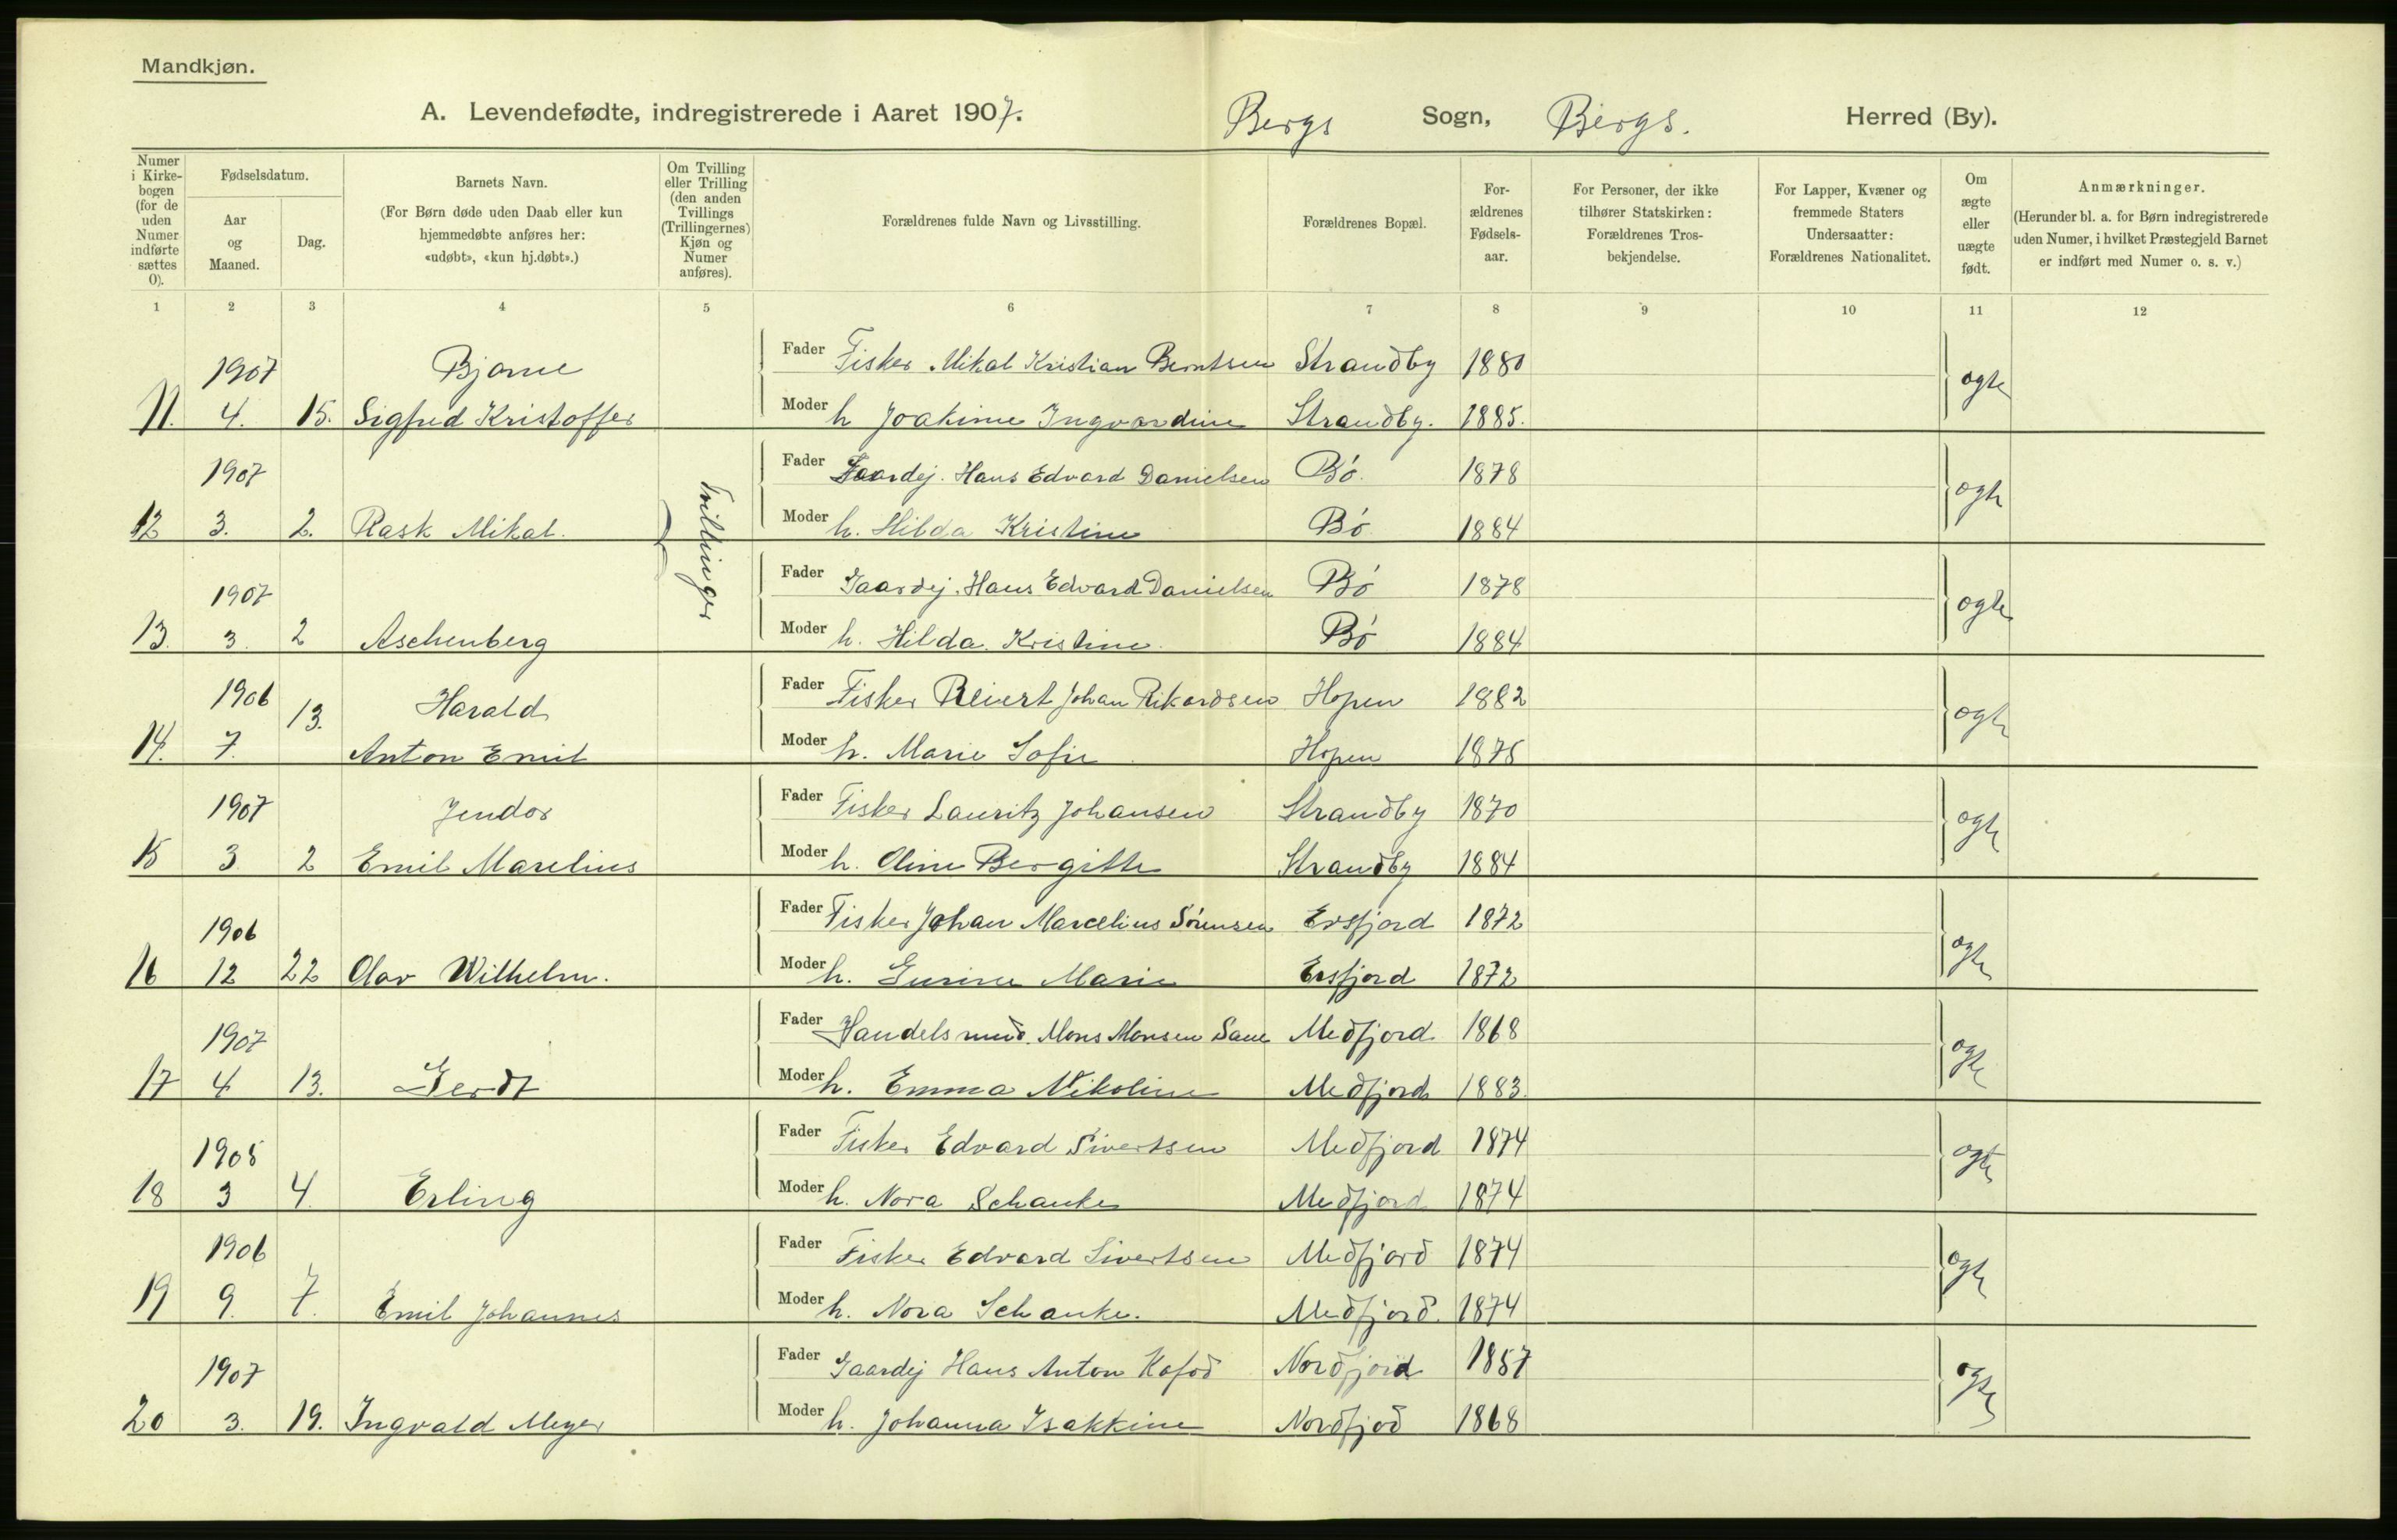 Mandkjøn.
A. Levendefødte, indregistrerede i Aaret 1907. Bergs Sogn, Bergs. Herred (By).
Numer i Kirkebogen (for de uden Numer indførte sættes 0).
Fødselsdatum.
Aar og Maaned.
Dag.
Barnets Navn.
(For Børn døde uden Daab eller kun hjemmedøbte anføres her: «udøbt», «kun hj.døbt».)
Om Tvilling eller Trilling (den anden Tvillings (Trillingernes) Kjøn og Numer anføres).
Forældrenes fulde Navn og Livsstilling.
Forældrenes Bopæl.
Forældrenes Fødselsaar.
For Personer, der ikke tilhører Statskirken: Forældrenes Trosbekjendelse.
For Lapper, Kvæner og fremmede Staters Undersaatter: Forældrenes Nationalitet.
Om ægte eller uægte født.
Anmærkninger.
(Herunder bl. a. for Børn indregistrerede uden Numer, i hvilket Præstegjeld Barnet er indført med Numer o. s. v.)
1 2 3 4 5 6 7 8 9 10 11 12
1907 Bjarne Fader Fisker Mikal Kristian Berntsen Strandby 1880 ægte
11. 4. 15. Sigfred Kristoffer Moder h Joakime Ingvardine Strandby. 1885.
1907 Fader Gaardej. Hans Edvard Danielsen Bö. 1878 ægte
12 3. 2. Rask Mikal. Tvillinger Moder h. Hilda Kristine Bö 1884
1907 Fader Gaardej. Hans Edvard Danielsen Bö 1878 ægte
13. 3. 2 Aschenberg Moder h. Hilda Kristine Bö 1884
1906 13. Harald Fader Fisker Reiert Johan Rikardsen Hopen 1882 ægte
14. 7. Anton Emil Moder h. Marie Sofie Hopen 1878
1907 Jendor Fader Fisker Lauritz Johansen Strandby 1870 ægte
15 3 2 Emil Marelius Moder h. Oline Bergitte Strandby 1884
1906 Fader Fisker Johan Marcelius Sörensen Ersfjord 1872 ægte
16 12 22 Olav Wilhelm. Moder h. Gurine Marie Ersfjord 1872
1907 Fader Handelsmnd. Mons Monsen Sane Medfjord 1868 ægte
17 4 13. Gerdt Moder h. Emma Nikoline Medfjord 1883.
1905 Fader Fisker Edvard Sivertsen Medfjord 1874 ægte
18 3 4. Erling Moder h. Nora Schanke Medfjord 1874
1906 Fader Fisker Edvard Sivertsen Medfjord 1874 ægte
19 9. 7. Emil Johannes Moder h. Nora Schanke. Medfjord. 1874
1907 Fader Gaardej Hans Anton Kofod Nordfjord 1857 ægte
20 3. 19. Ingvald Meyer Moder h. Johanna Isakkine Nordfjod 1868